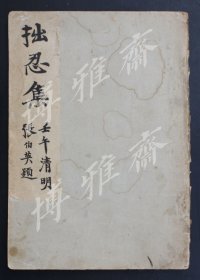 拙忍集
壬午清明
張伯英題
博雅齋
博雅齋